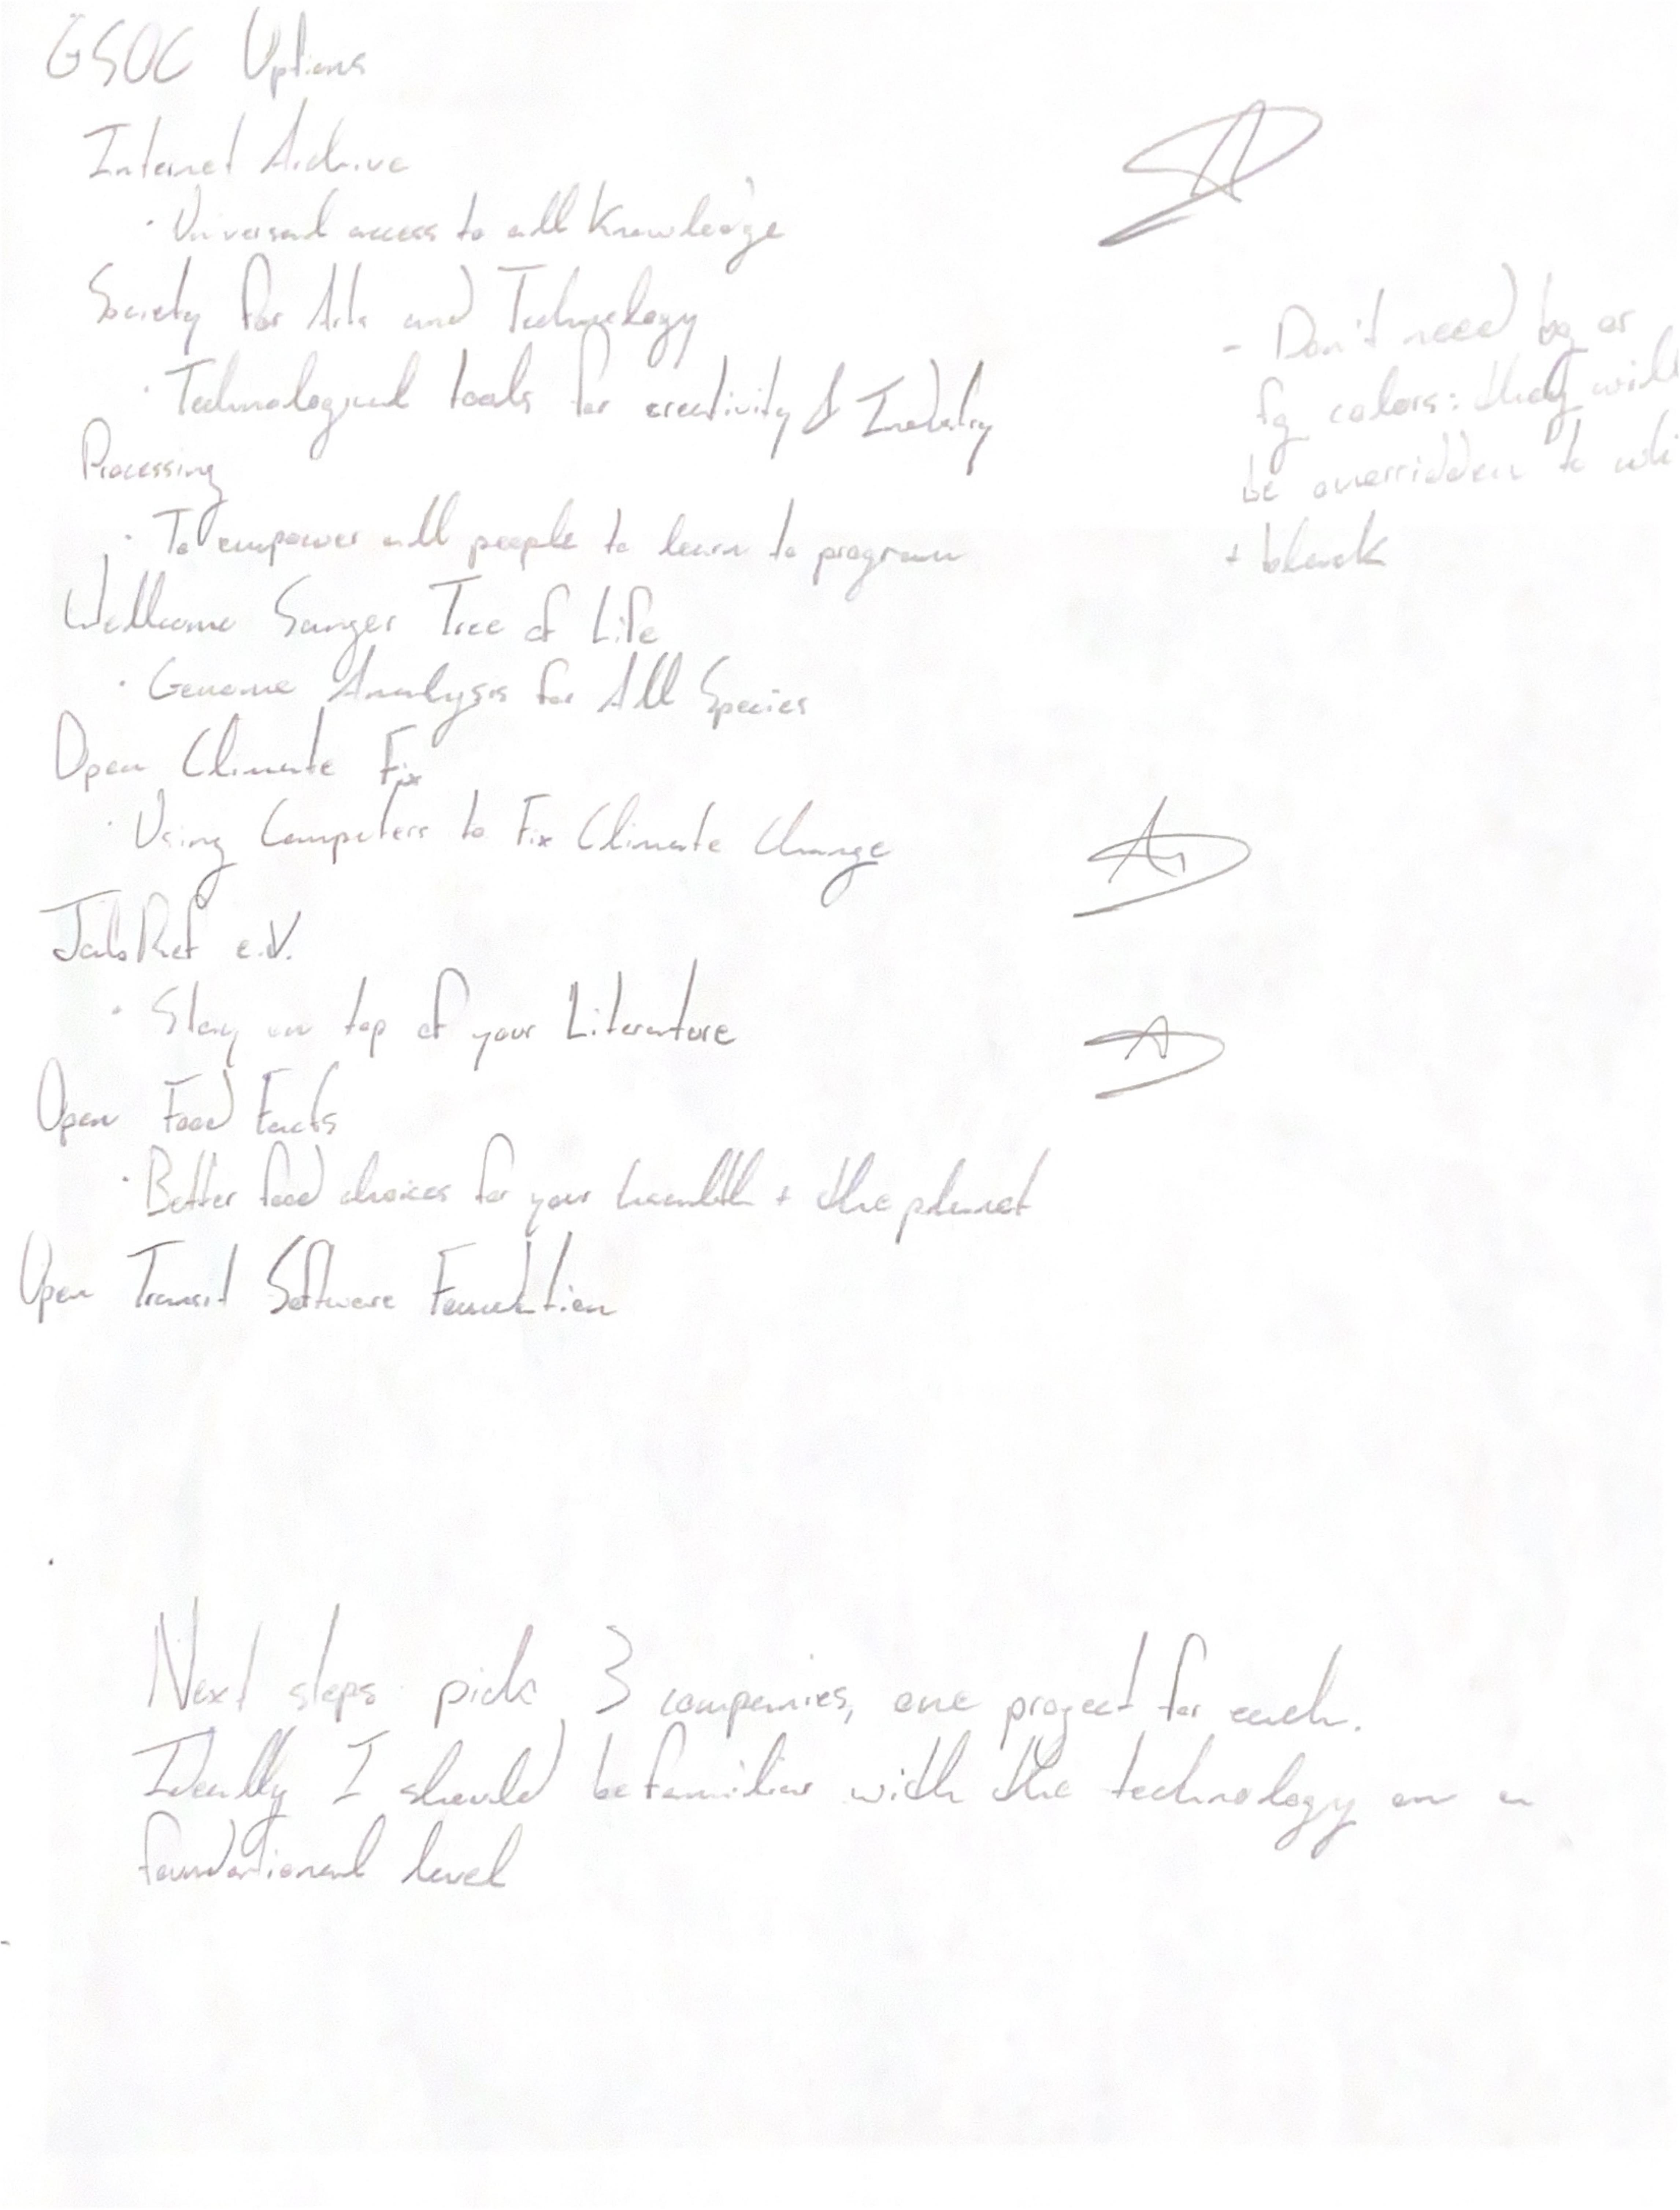 GSOC Options
Internet Archive
· Universal access to all Knowledge
Society for Arts and Technology
· Technological tools for creativity & Industry
Processing
· To empower all people to learn to program
Wellcome Sanger Tree of Life
· Genome Analysis for All Species
Open Climate Fix
· Using Computers to Fix Climate Change
JabRef e.V.
· Stay on top of your Literature
Open Food Facts
· Better food choices for your health + the planet
Open Transit Software Foundation
- Don't need bg or
fg colors: they will
be overridden to
+ black
Next steps pick 3 companies, one project for each.
Ideally I should be familiar with the technology on a
foundational level